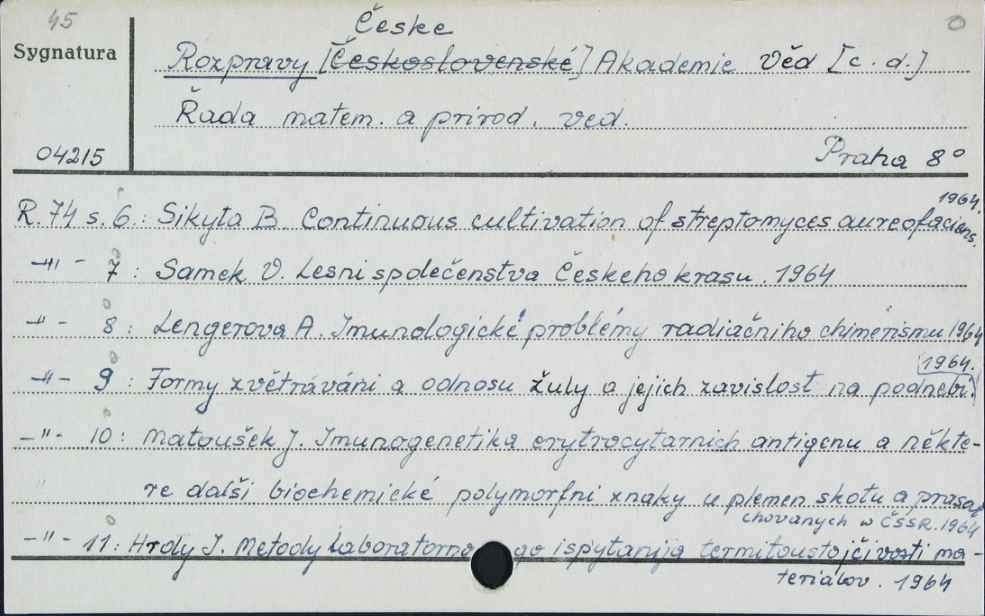 45
České
0
Sygnatura
Rozpravy [Československé] Akademie Věd [c. d.]
Řada matem. a prirod. ved.
04215
Praha 8°
1964.
R. 74 s. 6.: Sikyta B. Continuous cultivation of streptomyces aureofaciens.
-"- 7 : Samek V. Lesni společenstva Českeho krasu. 1964
-"- 8 : Lengerova A. Imunologické problémy radiačniho chimérismu 1964
1964.
-"- 9 : Formy zvětráváni a odnosu žuly a jejich zavislost na podnebi.
-"- 10 : Matoušek J. Imunogenetika erytrocytarnich antigenu a někte-
re dalši biochemické polymorfni znaky u plemen skotu a prasat
chovanych w ČSSR. 1964
-"- 11 : Hrdly I. Metody laboratorno go ispytanija termitoustojčivosti ma-
teriałov. 1964